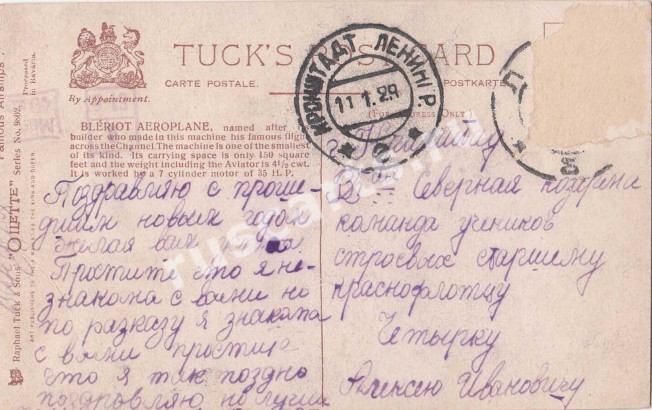 TUCK'S POSTCARD
CARTE POSTALE.
POSTKARTE
By Appointment.
(FOR ADDRESS ONLY.)
BLÉRIOT AEROPLANE, named after
builder who made in this machine his famous flight
across the Channel. The machine is one of the smallest
of its kind. Its carrying space is only 150 square
feet and the weight including the Aviator is 4½ cwt.
It is worked by a 7 cylinder motor of 35 H.P.
КРОНШТАДТ ЛЕНИНГР.
11.1.29
Поздравляю с проше-
дшим новым годом
Желая вам
Простите что я не-
знакома с вами но
по разказу я знакома
с вами простите
что я так поздно
поздравляю
г. Кронштадт
Северная
команда учеников
строевых старшему
краснофлотцу
Четырку
Алексею Ивановичу
Famous Airships
Series No. 9802.
Processed
in Bavaria.
Raphael Tuck & Sons' "OILETTE"
ART PUBLISHERS TO THE KING AND QUEEN